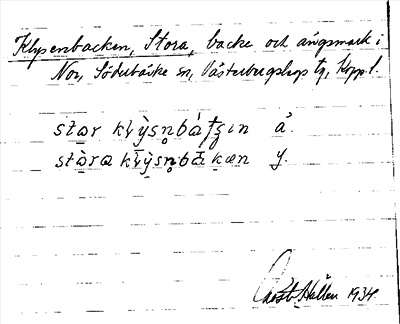 Klysenbacken, Stora, backe och ängsmark i
Nor, Söderbärke sn, Västerbergslags tg, Kopp. l.
stɑ̱r kḷỳsn̥bákʒɩn å.
stɑ̱̀ra kḷỳsn̥bàkæn y.
Hallen 1934.